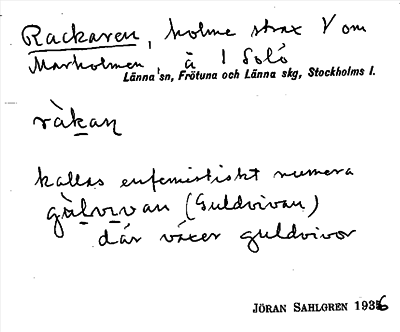 Rackaren, holme strax V om
Marholmen, å 1 Solö
Länna sn, Frötuna och Länna skg, Stockholms l.
ràkan
kallas eufemistiskt numera
gùlvivan (Guldvivan)
där växer guldvivor
JÖRAN SAHLGREN 1936